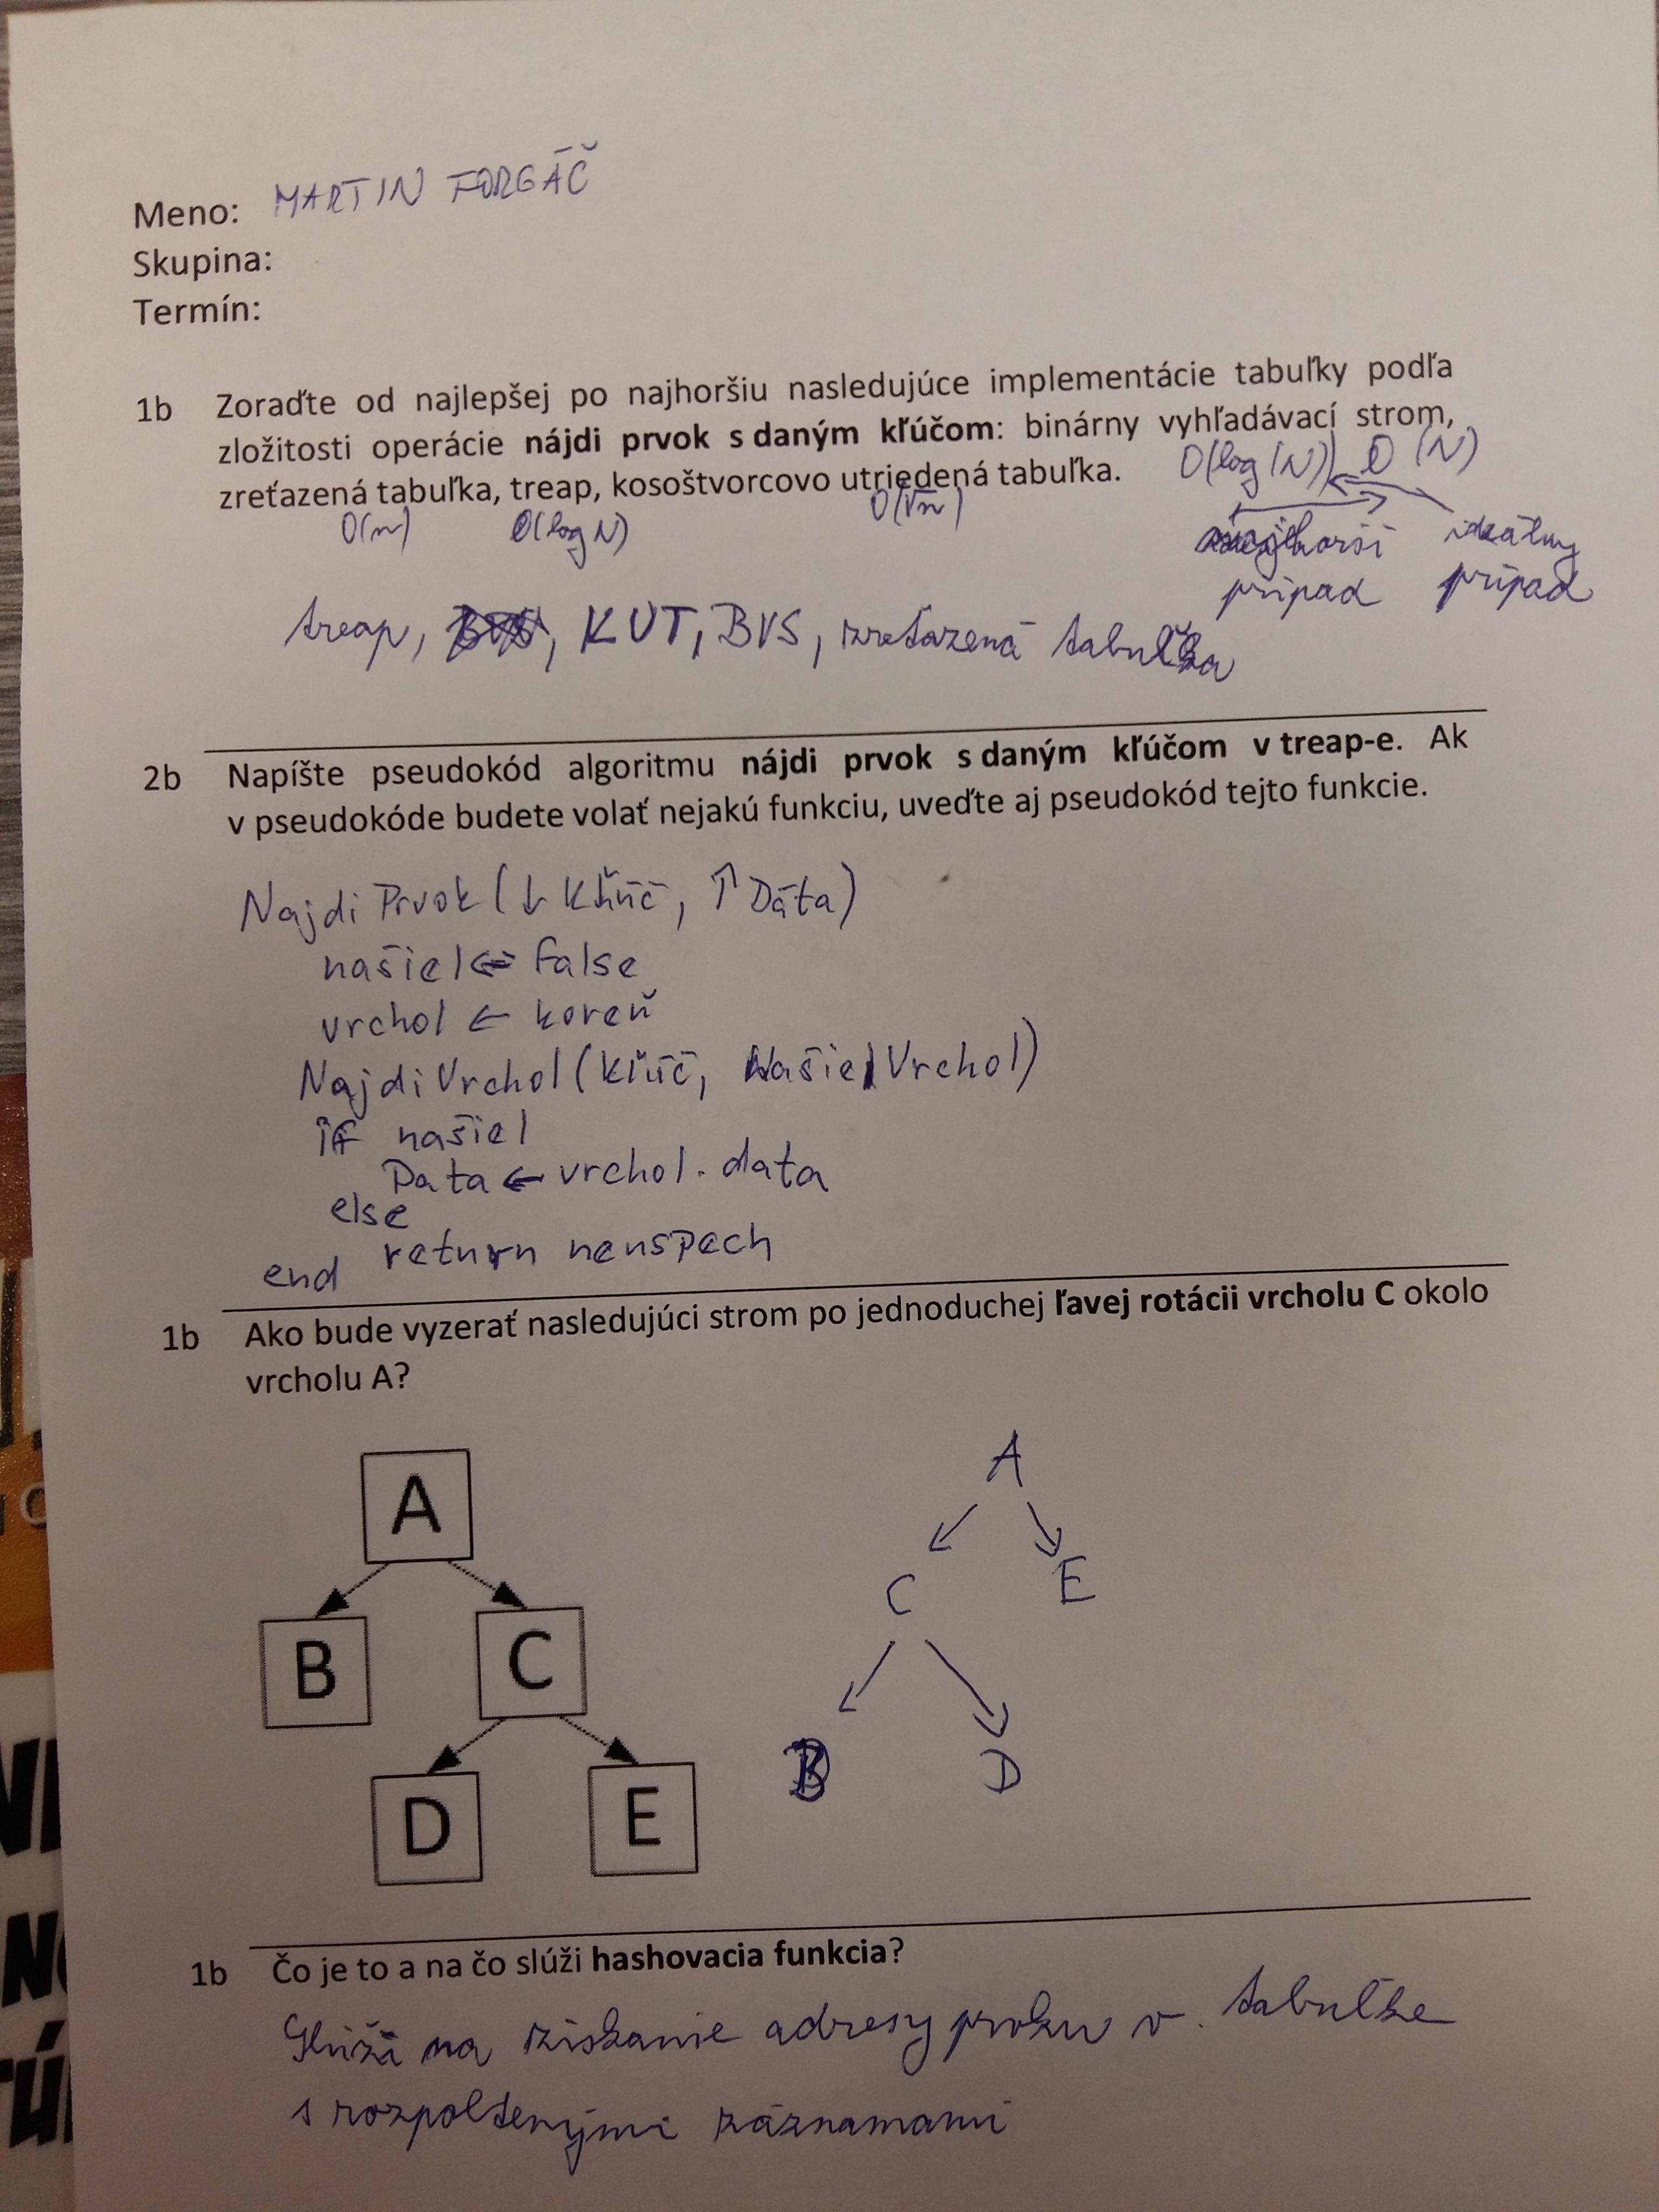 Meno: MARTIN FORGÁČ
Skupina:
Termín:
1b Zoraďte od najlepšej po najhoršiu nasledujúce implementácie tabuľky podľa
zložitosti operácie nájdi prvok s daným kľúčom: binárny vyhľadávací strom,
O(log(N)) O(N)
zreťazená tabuľka, treap, kosoštvorcovo utriedená tabuľka.
O(n) O(log N) O(√n)
najhorší ideálny
prípad prípad
treap, BVS, KUT, BVS, zreťazená tabuľka
2b Napíšte pseudokód algoritmu nájdi prvok s daným kľúčom v treap-e. Ak
v pseudokóde budete volať nejakú funkciu, uveďte aj pseudokód tejto funkcie.
Najdi Prvok (↓ Kľúč, ↑ Dáta)
našiel ← false
vrchol ← koreň
Najdi Vrchol (kľúč, Našiel, Vrchol)
if našiel
Data ← vrchol.data
else
return neúspech
end
1b Ako bude vyzerať nasledujúci strom po jednoduchej ľavej rotácii vrcholu C okolo
vrcholu A?
A
B C
D E
A
C E
B D
1b Čo je to a na čo slúži hashovacia funkcia?
Slúži na získanie adresy prvku v tabuľke
s rozptýlenými záznamami